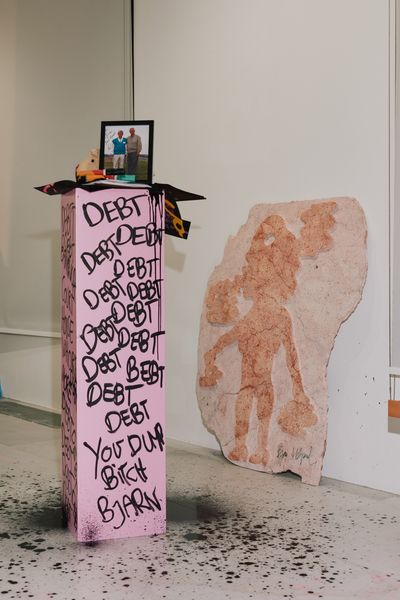 DEBT
DEBT DEBT
DEBT
DEBT DEBT
DEBT DEBT
DEBT
DEBT BEBT
DEBT
DEBT
YOU DUM
BITCH
BJARN